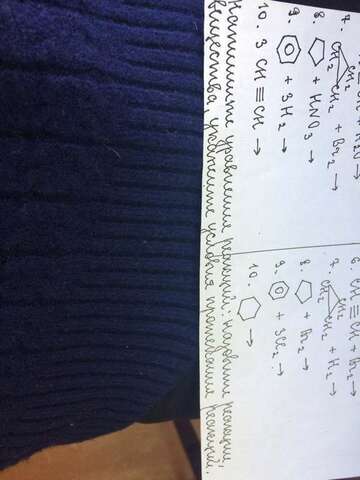 7. CH₂ CH₂ CH₂ + Br₂ →
8. + HNO₃ →
9. + 3H₂ →
10. 3 CH ≡ CH →
6. CH ≡ CH + Br₂ →
7. CH₂ CH₂ CH₂ + H₂ →
8. + Br₂ →
9. + 3Cl₂ →
10. →
Напишите уравнения реакций: назовите реакции,
вещества, укажите условия протекания реакций.